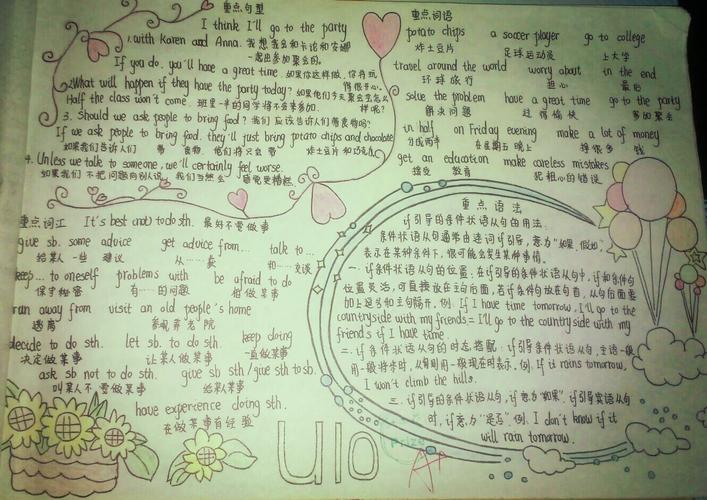 重点句型
I think I'll go to the party
1. with Karen and Anna. 我想我会和卡伦和安娜
一起去参加聚会的。
If you do, you'll have a great time. 如果你这样做,你将玩
得很开心。
2. What will happen if they have the party today? 如果他们今天聚会会怎么
样呢?
Half the class won't come. 班里一半的同学将不会来参加.
3. Should we ask people to bring food? 我们应该告诉人们带食物吗?
If we ask people to bring food, they'll just bring potato chips and chocolate
如果我们告诉人们 带 食物, 他们将只会带 炸土豆片和巧克力
4. Unless we talk to someone, we'll certainly feel worse.
如果我们不把问题向别人说, 我们当然会 感觉更糟糕.
重点词语
potato chips a soccer player go to college
炸土豆片 足球运动员 上大学
travel around the world worry about in the end
环球旅行 担心 最后
solve the problem have a great time go to the party
解决问题 过得愉快 参加聚会
in half on Friday evening make a lot of money
分成两半 在星期五晚上 挣很多钱
get an education make careless mistakes
接受 教育 犯粗心的错误
重点词汇 It's best (not) to do sth. 最好不要做事
give sb. some advice get advice from... talk to...
给某人一些 建议 从……卖 和……交谈
keep... to oneself problems with be afraid to do
保守秘密 有……的问题 怕做某事
run away from visit an old people's home
逃离 参观养老院
decide to do sth. let sb. to do sth. keep doing
决定做某事 让某人做某事 一直做某事
ask sb not to do sth give sb sth / give sth to sb.
叫某人不要做某事 给某人某事
have experience doing sth.
在做某事有经验
重点语法
if引导的条件状语从句的用法.
条件状语从句通常由连词if引导,意为"如果、假如",
表示在某种条件下,很可能会发生某种事情。
一. if条件状语从句的位置,在if引导的条件状语从句中, if和条件句
位置灵活,可直接放在主句后面,若if条件句放在句首,从句后面要
加上逗号和主句隔开. 例. If I have time tomorrow, I'll go to the
countryside with my friends = I'll go to the countryside with my
friends if I have time
二. if条件状语从句的时态搭配. if引导条件状语从句,主语一般
用一般将来时,从句则用一般现在时表示. 例. If it rains tomorrow,
I won't climb the hills.
三. if引导的条件状语从句, if意为"如果". if引导宾语从句
时, if意为"是否". 例. I don't know if it
will rain tomorrow.
U10
A+